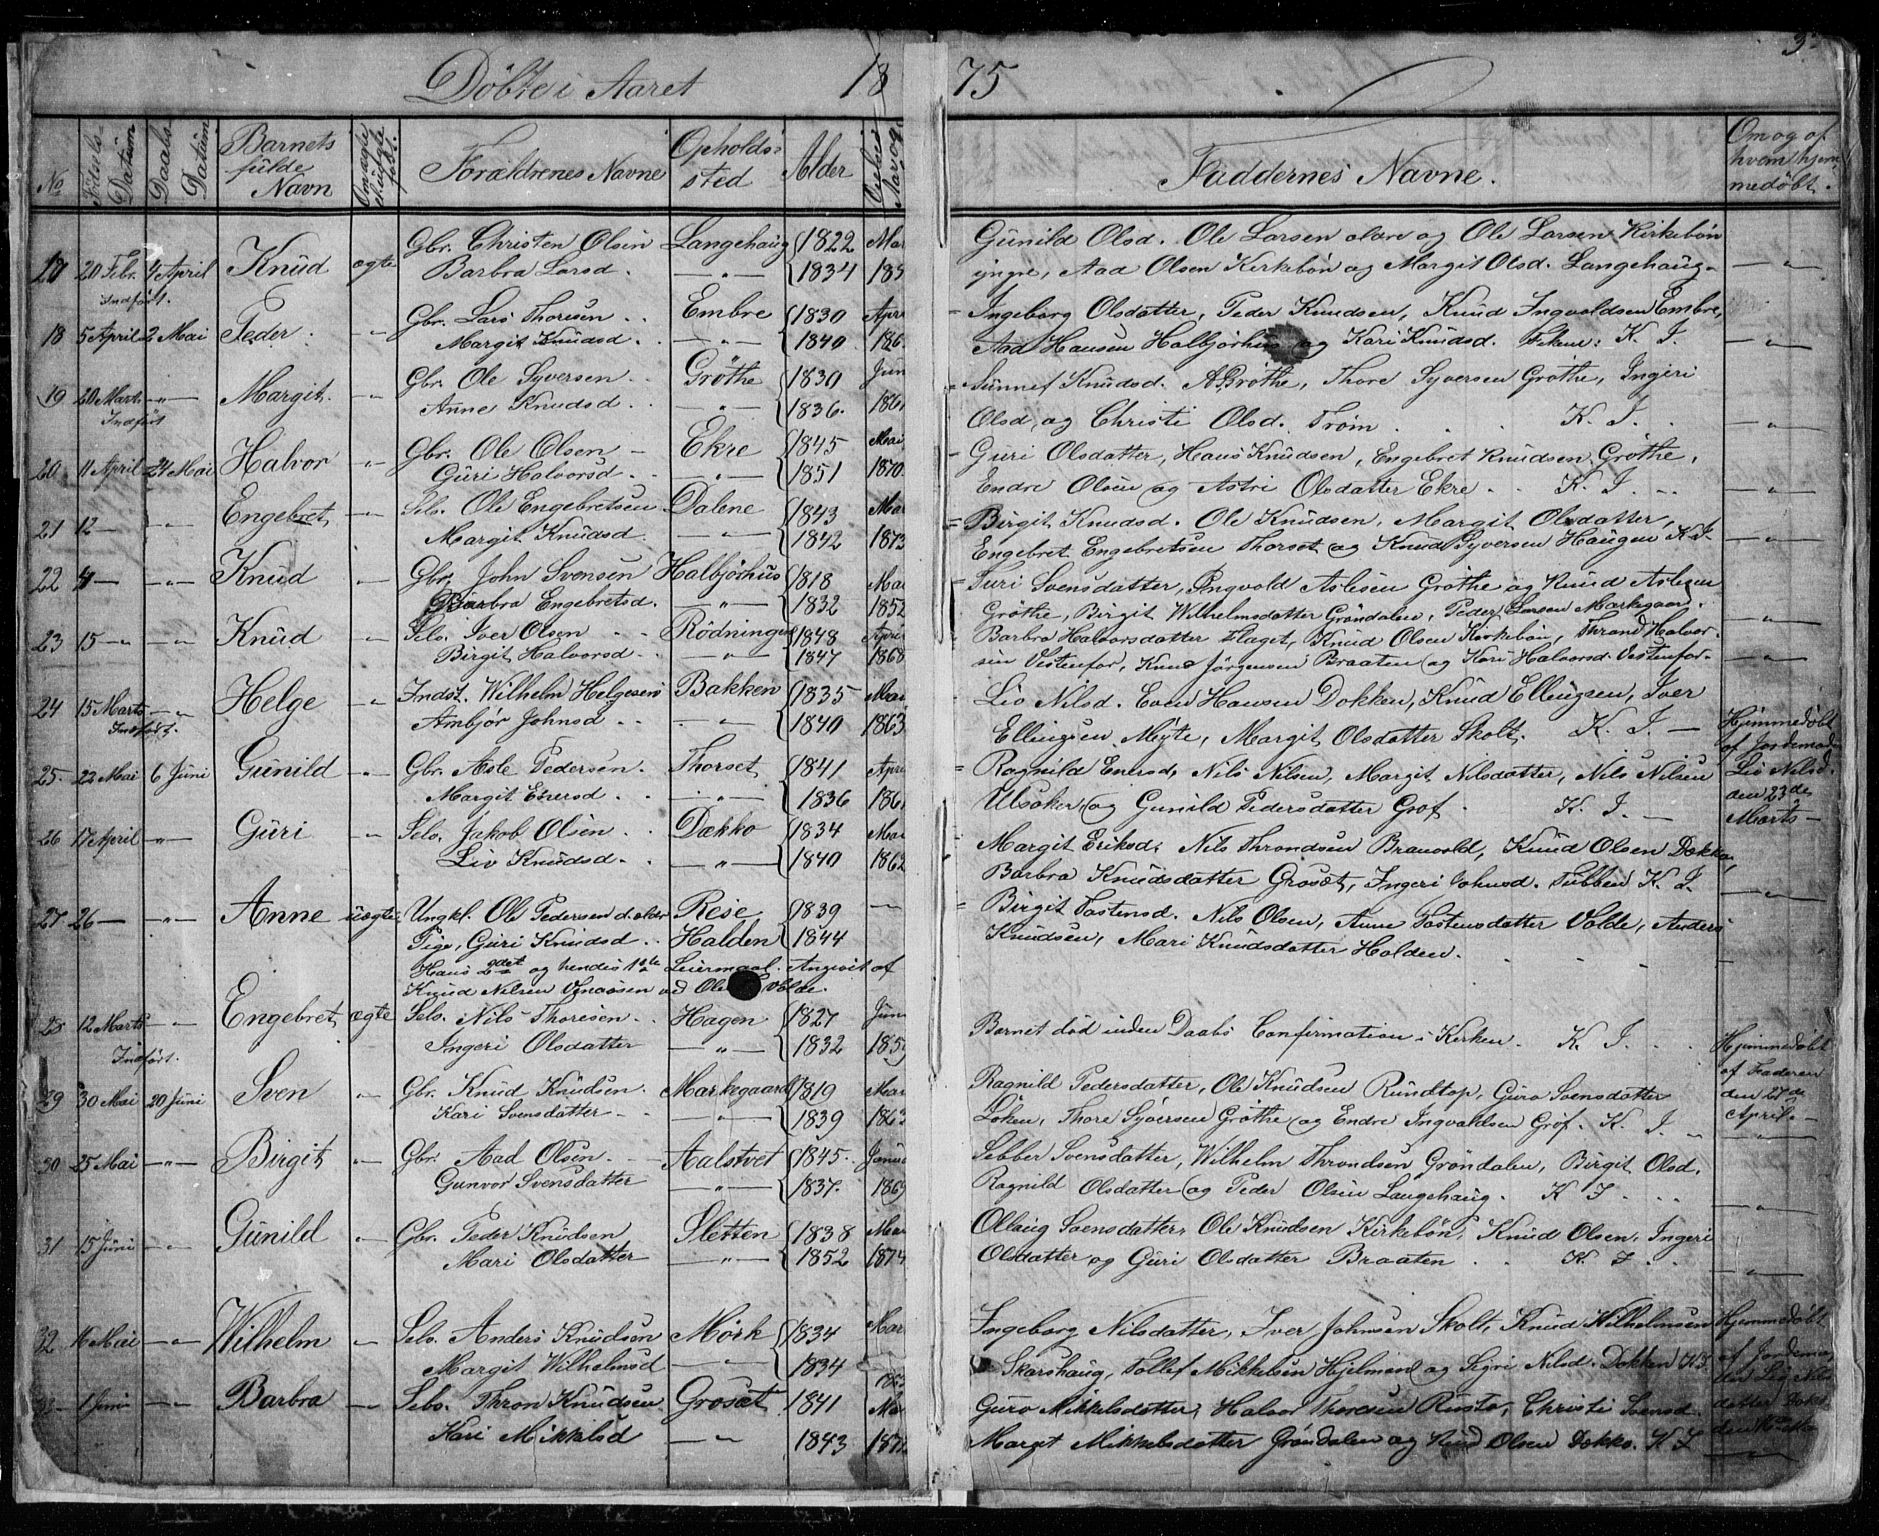 3
Döbte i Aaret 1875
No
Födsels-Datum
Daabs-Datum
Barnets fulde Navn
Om ægte eller uægte født.
Forældrenes Navne
Opholds-sted
Alder
Faddernes Navne.
Om og af hvem hjem-medøbt.
17 20 Febr. 4 April Knud ægte Gbr. Christen Olsen Langehaug 1822 Mar
Indført. Barbra Larsd. — " — 1834 185
Gunild Olsd. Ole Larsen ældre og Ole Larsen Kirkebøn
yngre, Aad Olsen Kirkebøn og Margit Olsd. Langehaug. — " —
18 5 April 2 Mai Peder — " Gbr. Lars Thoresen Embre 1830 Apri
Margit Knudsd. — " — 1840 186
Ingeborg Olsdatter, Peder Knudsen, Knud Ingvaldsen Embre,
Aad Hansen Halbjørhus og Kari Knudsd. K. I. — " —
19 20 Marts — " — Margit — " Gbr. Ole Syversen Gröthe 1830 Jun
Indført Anne Knudsd. — " — 1836. 186
Sunnef Knudsd. Gröthe, Thore Syversen Gröthe, Ingeri
Olsd. og Christi Olsd. Trøim K. I. — " —
20 11 April 24 Mai Halvor — " Gbr. Ole Olsen Ekre 1845 Mai
Guri Halvorsd. — " — 1851 1870
Guri Olsdatter, Hans Knudsen, Engebret Knudsen Gröthe,
Endre Olsen og Astri Olsdatter Ekre K. I. — " —
21 12 — — " — Engebret — " Selv. Ole Engebretsen Dalene 1843 Mar
Margit Knudsd. — " — 1842 1873
Birgit Knudsd. Ole Knudsen, Margit Olsdatter,
Engebret Engebretsen Thorset og Knud Syversen Haugen K. I. — " —
22 4 — — " — Knud — " Gbr. John Svensen Halbjørhus 1818 Mar
Barbra Engebretsd. — " — 1832 1852
Turi Svensdatter, Ingvold Aslesen Gröthe og Knud Aslesen
Gröthe, Birgit Wilhelmsdatter Gröndalen, Peder Larsen Markegaard. — " —
23 15 — " — " — Knud — " Selv. Iver Olsen Rödningen 1848 Apri
Birgit Halvorsd. — " — 1847 1868
Barbro Halvorsdatter Flaget, Knud Olsen Kirkebön, Thrond Halvor-
sen Vestenfor, Knud Jörgensen Braaten og Kari Halvorsd. Vestenfor. — " —
24 15 Marts — " — Helge — " Indst. Wilhelm Helgesen Bakken 1835 Mar
Indført. Ambjør Johnsd. — " — 1840 1863
Liv Nilsd. Even Hansen Dokken, Knud Ellingsen, Iver
Ellingsen Myte, Margit Olsdatter Skolt. K. I. — Hjemmedøbt
af Jordemoder
Liv Nilsd.
den 23de
Marts —
25. 22 Mai 6 Juni Gunild — " Gbr. Asle Pedersen Thorset 1841 Apri
Margit Enersd. — " — 1836 186
Ragnild Enersd, Nils Nilsen, Margit Nilsdatter, Nils Nilsen
Ulsaker og Gunild Pedersdatter Grøf. K. I. —
26 17 April — " — Guri — " Selv. Jakob Olsen Dække 1834 Mar
Liv Knudsd. — " — 1840 1862
Margit Eriksd, Nils Throndsen Brauvold, Knud Olsen Dække,
Barbra Knudsdatter Grosæt, Ingeri Johnsd. Tubben K. I. — " —
27 26 — — " — Anne uægte Ungk. Ole Pedersen d. ældre Rese 1839 —
Pige, Guri Knudsd. Halden 1844
Hans 2det og hendes 1ste Leiermaal. Angivet af
Knud Nilsen ved Ole Volde.
Birgit Tostensd. Nils Olsen, Anne Tostensdatter Volde, Anders
Knudsen, Mari Knudsdatter Halden.
28 12 Marts — " — Engebret ægte Selv. Nils Thoresen Hagen 1827 Jun
Indført. Ingeri Olsdatter — " — 1832 185
Barnet död inden Daabs Confirmation i Kirken. K. I. Hjemmedøbt
af Faderen
den 27de
April. —
29 30 Mai 20 Juni Sven — " Gbr. Knud Knudsen Markegaard 1819 Mar
Kari Svensdatter — " — 1839 1863
Ragnild Pedersdatter, Ole Knudsen Rundtop, Guro Svensdatter
Löken, Thore Syversen Gröthe og Endre Ingvaldsen Grøf. K. I. — " —
30 25 Mai — " — Birgit — " Gbr. Aad Olsen Aalstvet 1845 Janua
Gunvor Svensdatter — " — 1837. 1869
Sebber Svensdatter, Wilhelm Throndsen Gröndalen, Birgit Olsd.
Ragnild Olsdatter og Peder Olsen Langehaug. K. I. — " —
31 15 Juni — " — Gunild — " Gbr. Peder Knudsen Sletten 1838 Mar
Mari Olsdatter — " — 1852 1874
Ollaug Svensdatter, Ole Knudsen Kirkebön, Knud Olsen, Ingeri
Olsdatter og Guri Olsdatter Braaten K. I. — " —
32 16 Mai — " — Wilhelm — " Selv. Anders Knudsen Mörk 1834 Mar
Margit Wilhelmsd — " — 1834
Ingeborg Nilsdatter, Iver Johnsen Skolt, Knud Wilhelmsen Hjemmedøbt
Skarshaug, Tollef Mikkelsen Hjelmen og Sigri Nilsd. Dokken K. I. af Jordemo-
der Liv Nils
datter Dok
33 1 Juni — " — Barbra — " Selv. Thron Knudsen Grosæt 1841 Ma
Kari Mikkelsd — " — 1843 187
Guro Mikkelsdatter, Halvor Thoresen Rusto, Christi Svensd.
Margit Mikkelsdatter Gröndalen og Knud Olsen Dækko. K. I. — " —